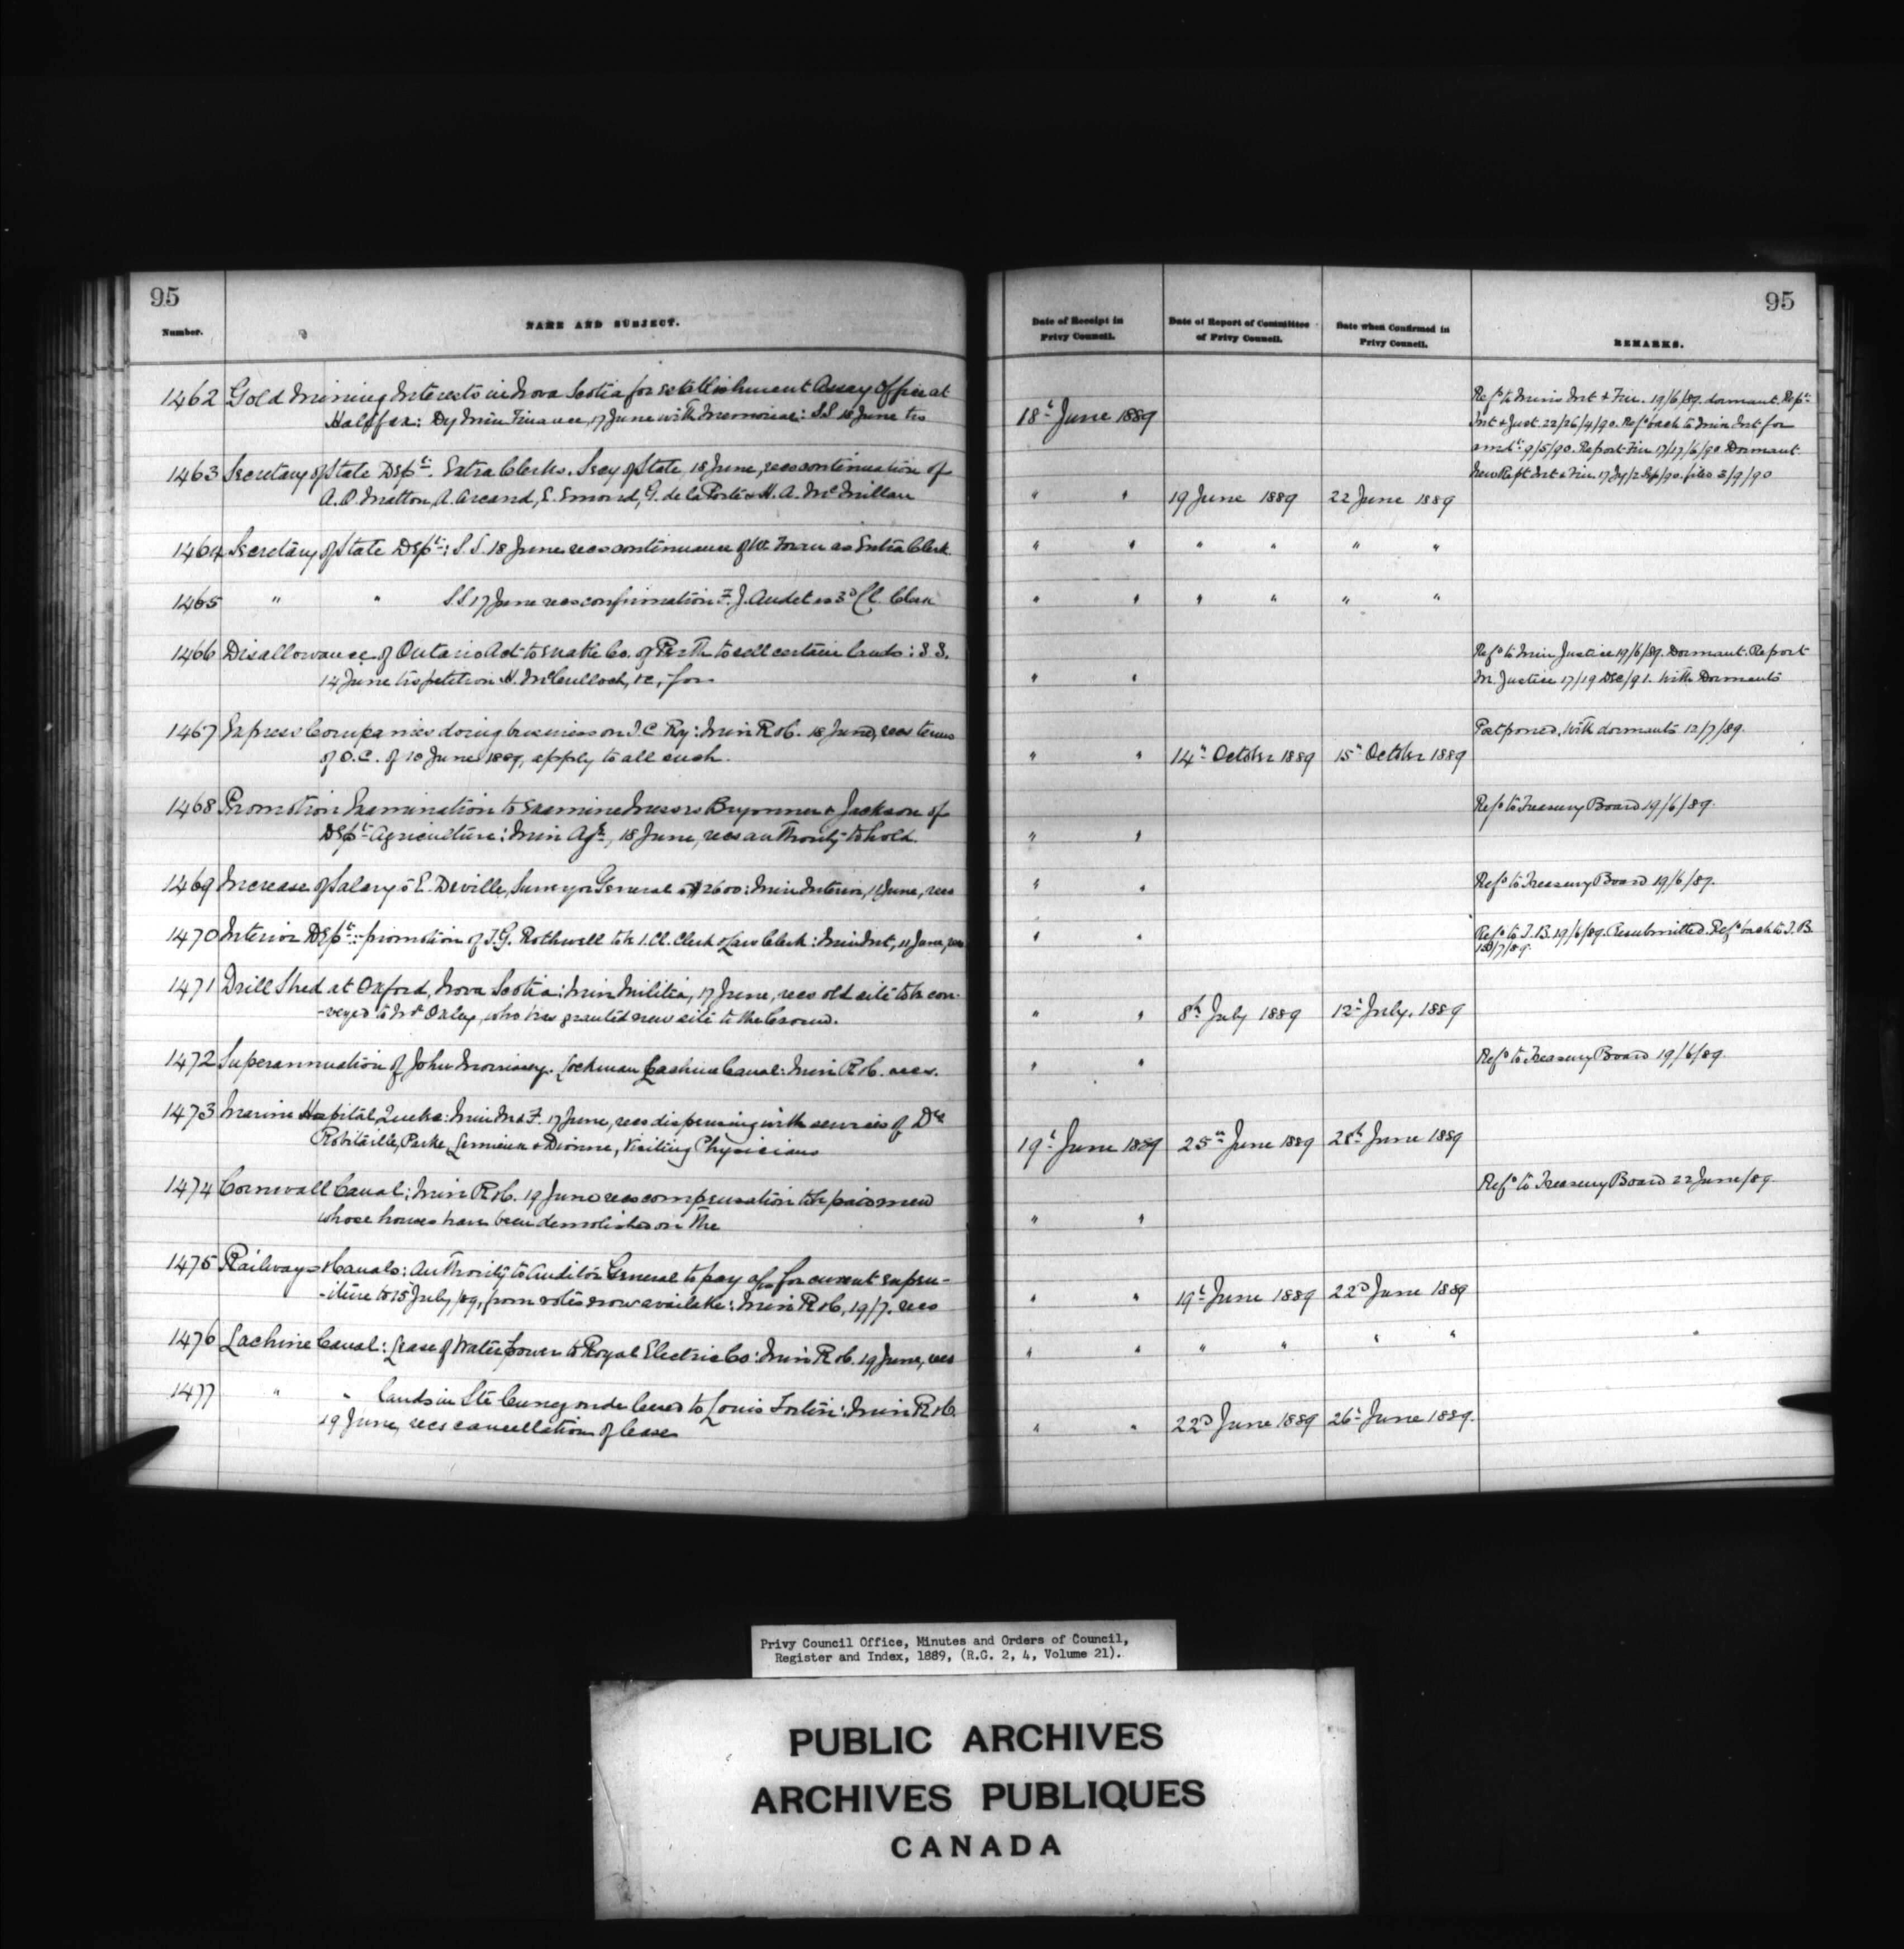 95
Number.
NAME AND SUBJECT.
1462 Gold Mining Interests in Nova Scotia for establishment Assay Office at
Halifax: Dy Min Finance, 17 June with Memorial: S.S. 18 June trs
1463 Secretary of State Dept. Extra Clerks. Secy of State 18 June, recs continuation of
A. O. Matton, A. Arcand, E. Emond, G. de la Porte & H. A. McMillan
1464 Secretary of State Dept: S.S. 18 June recs continuance of W. Foran as Extra Clerk
1465 " " S.S. 17 June recs confirmation F. J. Audet as 3d Cl. Clerk
1466 Disallowance of Ontario Act to enable Co. of Perth to sell certain lands: S.S.
14 June trs petition H. McCulloch, &c, for
1467 Express Companies doing business on I.C. Ry: Min R & C. 18 June, recs terms
of O.C. of 10 June 1889, apply to all such.
1468 Promotion Examination to examine Messrs Brymner & Jackson of
Dept Agriculture: Min Agr, 18 June, recs authority to hold.
1469 Increase of Salary to E. Deville, Surveyor General to $2600: Min Interior, 11 June, recs
1470 Interior Dept: promotion of T. G. Rothwell to be 1. Cl. Clerk & Law Clerk: Min Int, 11 June, recs
1471 Drill Shed at Oxford, Nova Scotia: Min Militia, 17 June, recs old site to be con-
-veyed to Oxley, who has granted new site to the Crown.
1472 Superannuation of John Morrissey. Lockman Lachine Canal: Min R & C. recs.
1473 Marine Hospital, Quebec: Min M & F. 17 June, recs dispensing with services of Drs
Robitaille, Parke, Lemieux & Dionne, Visiting Physicians
1474 Cornwall Canal: Min R & C. 19 June recs compensation to be paid men
whose houses have been demolished on the
1475 Railways & Canals: Authority to Auditor General to pay for current expen-
-diture to 15 July/89, from votes now available: Min R & C, 19/7. recs
1476 Lachine Canal: Lease of Water Power to Royal Electric Co: Min R & C. 19 June, recs
1477 " " lands in Ste Cunegonde leased to Louis Fortin: Min R & C.
19 June, recs cancellation of lease
95
Date of Receipt in
Privy Council.
Date of Report of Committee
of Privy Council.
Date when Confirmed in
Privy Council.
REMARKS.
18t June 1889
Refd to Minis Int & Fin. 19/6/89. dormant. Rept
Int & Just. 22/26/4/90. Refd back to Min Int for
amdt 9/5/90. Report Fin 17/17/6/90 Dormant
New Rept Int & Fin. 17 Jy/2 Sep/90. 3/9/90
" " 19 June 1889 22 June 1889
" " " " " "
" " " " " "
Refd to Min Justice 19/6/89. Dormant. Report
M. Justice 17/19 Dec/91. With Dormants
" "
Postponed. With dormants 12/7/89.
" " 14t October 1889 15t October 1889
Refd to Treasury Board 19/6/89.
" "
" " Refd to Treasury Board 19/6/89.
" " Refd to T.B. 19/6/89. Resubmitted. Refd back to T.B.
" " 8th July 1889 12t July, 1889
" " Refd to Treasury Board 19/6/89.
19t June 1889 25th June 1889 28th June 1889
Refd to Treasury Board 22 June/89.
" "
" " 19t June 1889 22d June 1889
" " " " " "
" " 22d June 1889 26t June 1889.
Privy Council Office, Minutes and Orders of Council,
Register and Index, 1889, (R.G. 2, 4, Volume 21).
PUBLIC ARCHIVES
ARCHIVES PUBLIQUES
CANADA